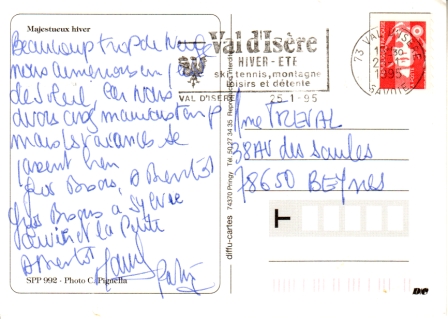 Majestueux hiver
Beaucoup trop de Neige
nous aimerions un
de Soleil, car nous
avons cinq mauvais temp
mais les vacances se
passent bien
Gros Bisous, A Bientôt
Gros Bisous a Sylvie
et La Petite
A Bientôt
SPP 992 - Photo C. Pignella
diffu-cartes 74370 Pringy
Val d'Isère
HIVER - ETE
ski, tennis, montagne
loisirs et détente
VAL D'ISERE 25-1-95
73 VAL D'ISERE
1995
SAVOIE
Mme TREVAL
38 AV des Saules
78650 BEYNES
T